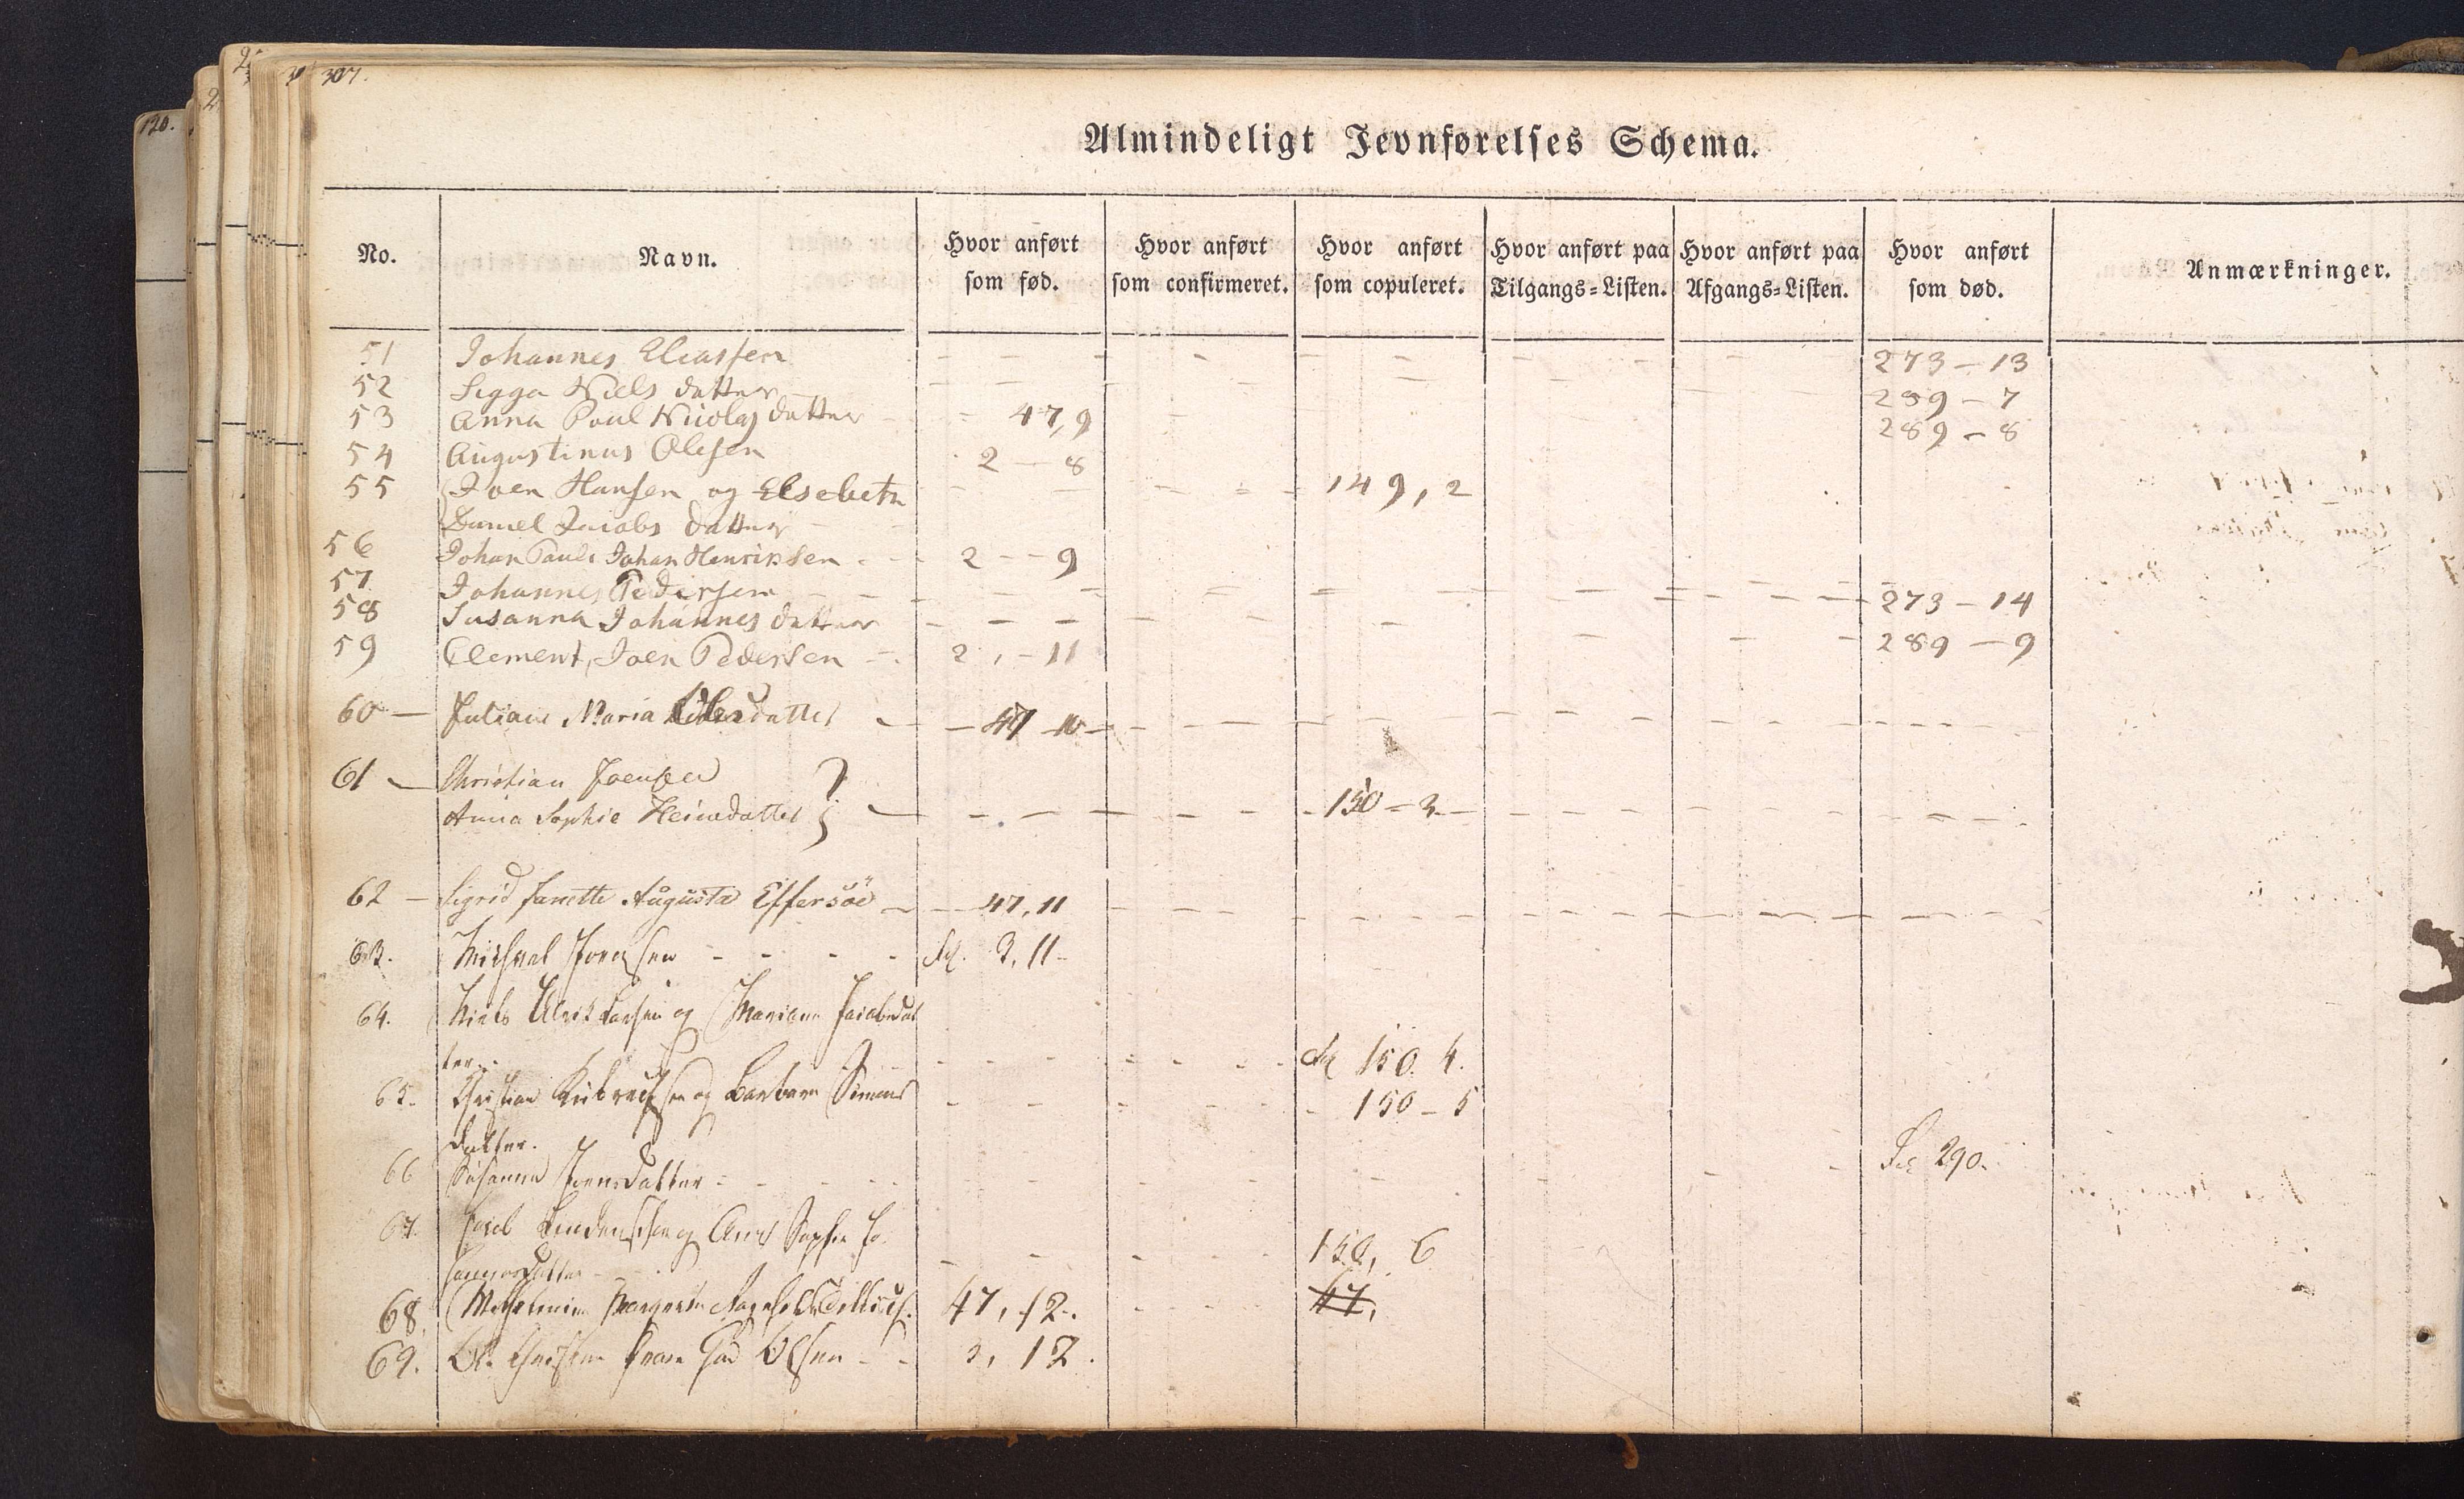 120.
307.
Almindeligt Jevnførelses Schema.
No. Navn. Hvor anført som fød. Hvor anført som confirmeret. Hvor anført som copuleret. Hvor anført paa Tilgangs-Listen. Hvor anført paa Afgangs-Listen. Hvor anført som død. Anmærkninger.
51 Johannes Eliassen 273 - 13
52 Sigga Niels datter 289 - 7
53 Anna Poul Nicolaj datter 47,9 289 - 8
54 Augustinus Olesen 2 - 8
55 Joen Hansen og Elsebeth 149, 2
Daniel Jacobs datter
56 Johan Pauli Johan Henriksen 2 - 9
57 Johannes Pedersen 273 - 14
58 Susanna Johannes datter 289 - 9
59 Clement Joen Pedersen 2, - 11
60 - Juliane Maria datter - 47 - 10 -
61 - Christian Joensen
Anna Sophie Heinedatter } 150 - 3
62 - Sigrid Janette Augusta Effersöe 47, 11
63. Michael Joensen 3, 11
64. Niels Ulrik og Mariane Jacobsdat
ter. 150. 4.
65. Christian og Barbara Simons 150 - 5
datter.
66 Susanna Joensdatter 290.
67. og Anna Sophie Jo-
hannesdatter 150, 6
68. Wilhelmine Margrethe 47, 12. 47,
69. Ole Olsen 3, 12.